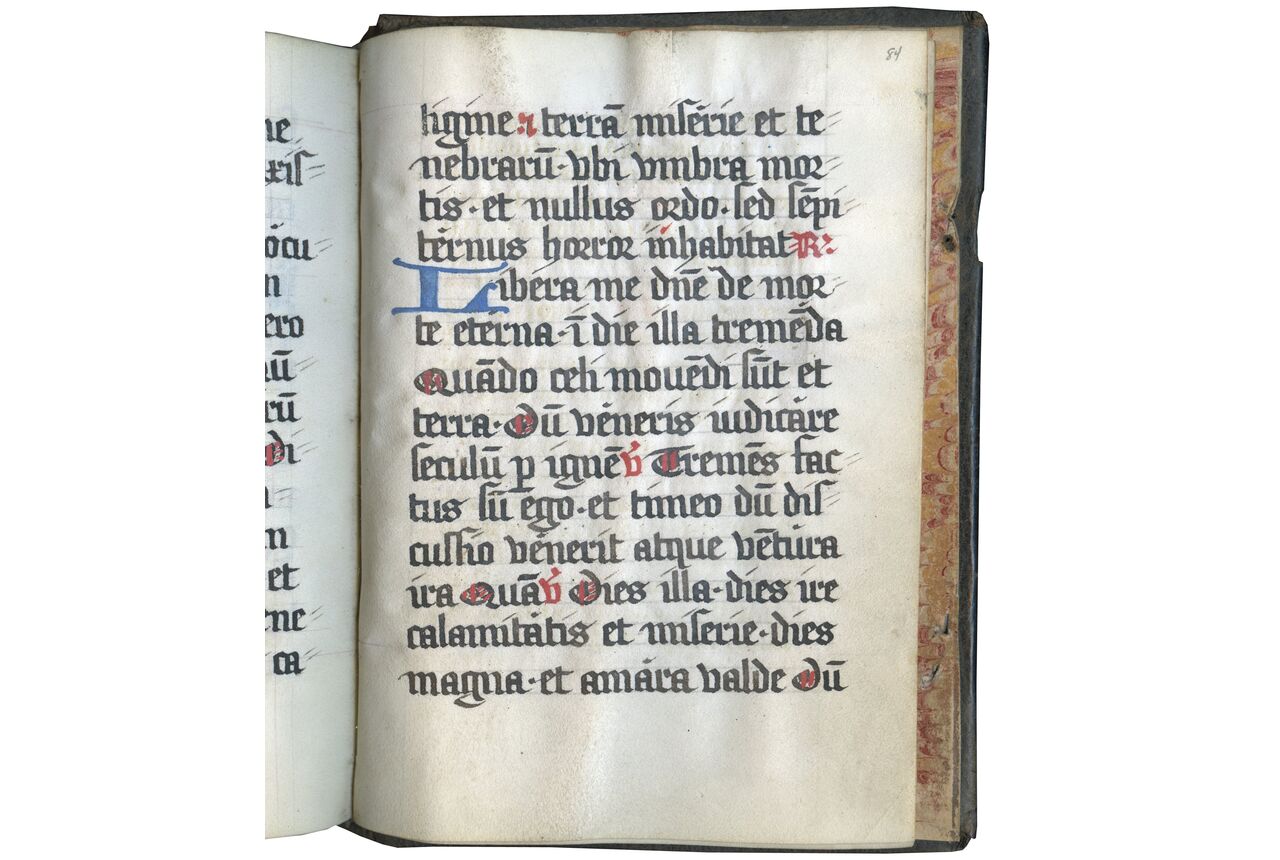 84
ligine: terrā miserie et te
nebrarū · vbi vmbra mor
tis · et nullus ordo · sed sēpi
ternus horror inhabitat R:
Libera me dn̄e de mor
te eterna · ī die illa tremēda
Quādo celi mouēdi sūt et
terra · Dū veneris iudicare
seculū ꝑ ignē v̄ Tremēs fac
tus sū ego · et timeo dū dis
cussio venerit atque vētura
ira Quā v̄ Dies illa · dies ire
calamitatis et miserie · dies
magna · et amara valde Dū